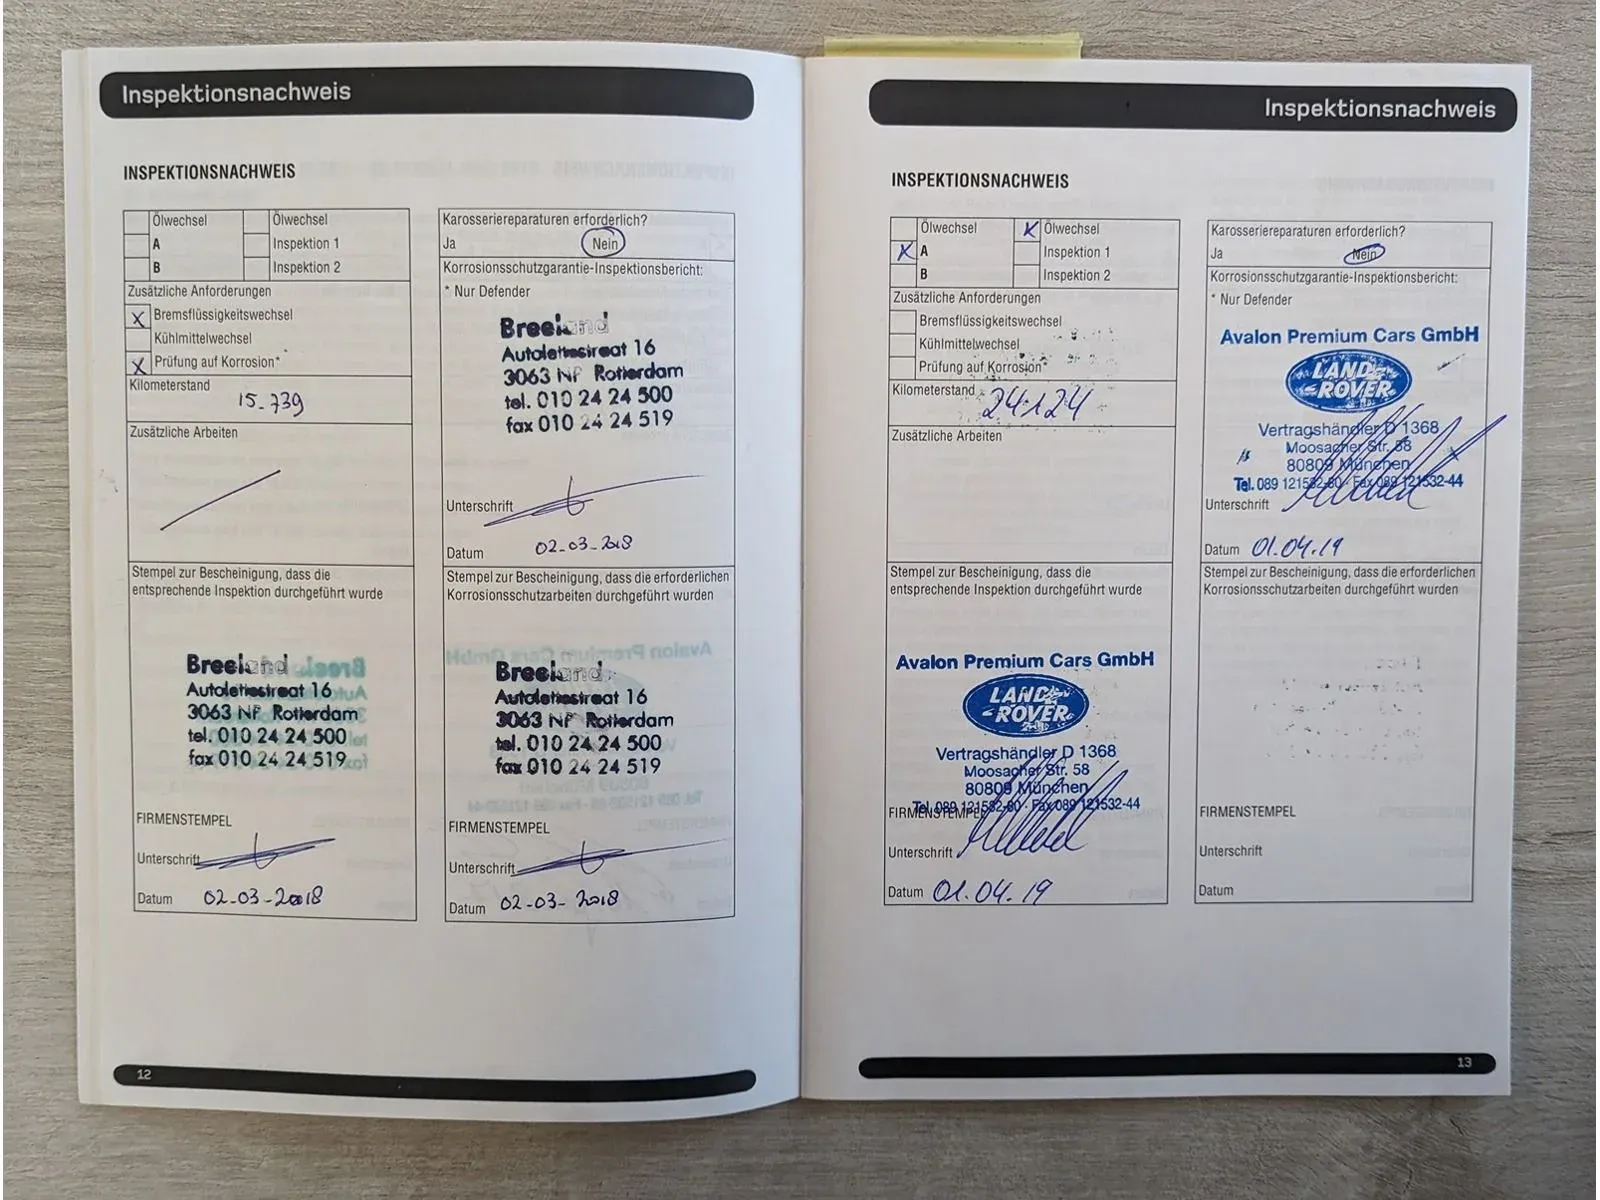 Inspektionsnachweis
INSPEKTIONSNACHWEIS
Ölwechsel
Ölwechsel
A
Inspektion 1
B
Inspektion 2
Zusätzliche Anforderungen
X Bremsflüssigkeitswechsel
Kühlmittelwechsel
X Prüfung auf Korrosion*
Kilometerstand
15-739
Zusätzliche Arbeiten
Stempel zur Bescheinigung, dass die
entsprechende Inspektion durchgeführt wurde
Breeland
Autolettestraat 16
3063 NP Rotterdam
tel. 010 24 24 500
fax 010 24 24 519
FIRMENSTEMPEL
Unterschrift
Datum 02-03-2018
Karosseriereparaturen erforderlich?
Ja Nein
Korrosionsschutzgarantie-Inspektionsbericht:
* Nur Defender
Breeland
Autolettestraat 16
3063 NP Rotterdam
tel. 010 24 24 500
fax 010 24 24 519
Unterschrift
Datum 02-03-2018
Stempel zur Bescheinigung, dass die erforderlichen
Korrosionsschutzarbeiten durchgeführt wurden
Breeland
Autolettestraat 16
3063 NP Rotterdam
tel. 010 24 24 500
fax 010 24 24 519
FIRMENSTEMPEL
Unterschrift
Datum 02-03-2018
12
Inspektionsnachweis
INSPEKTIONSNACHWEIS
Ölwechsel
X Ölwechsel
X A
Inspektion 1
B
Inspektion 2
Zusätzliche Anforderungen
Bremsflüssigkeitswechsel
Kühlmittelwechsel
Prüfung auf Korrosion*
Kilometerstand 24124
Zusätzliche Arbeiten
Stempel zur Bescheinigung, dass die
entsprechende Inspektion durchgeführt wurde
Avalon Premium Cars GmbH
LAND
ROVER
Vertragshändler D 1368
Moosacher Str. 58
80809 München
Tel. 089 121532-80 · Fax 089 121532-44
FIRMENSTEMPEL
Unterschrift
Datum 01.04.19
Karosseriereparaturen erforderlich?
Ja Nein
Korrosionsschutzgarantie-Inspektionsbericht:
* Nur Defender
Avalon Premium Cars GmbH
LAND
ROVER
Vertragshändler D 1368
Moosacher Str. 58
80809 München
Tel. 089 121532-80 · Fax 089 121532-44
Unterschrift
Datum 01.04.19
Stempel zur Bescheinigung, dass die erforderlichen
Korrosionsschutzarbeiten durchgeführt wurden
FIRMENSTEMPEL
Unterschrift
Datum
13